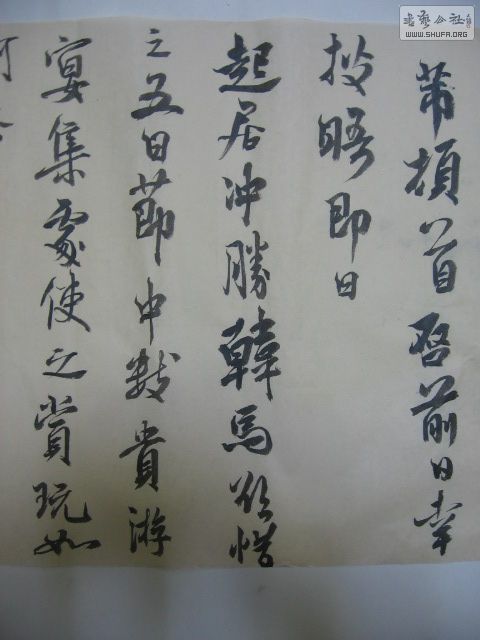 芾頓首啓前日幸
披晤即日
起居冲勝韓馬欲借
之五日節中數貴游
宴集處使之賞玩如
可
書藝公社
WWW.SHUFA.ORG